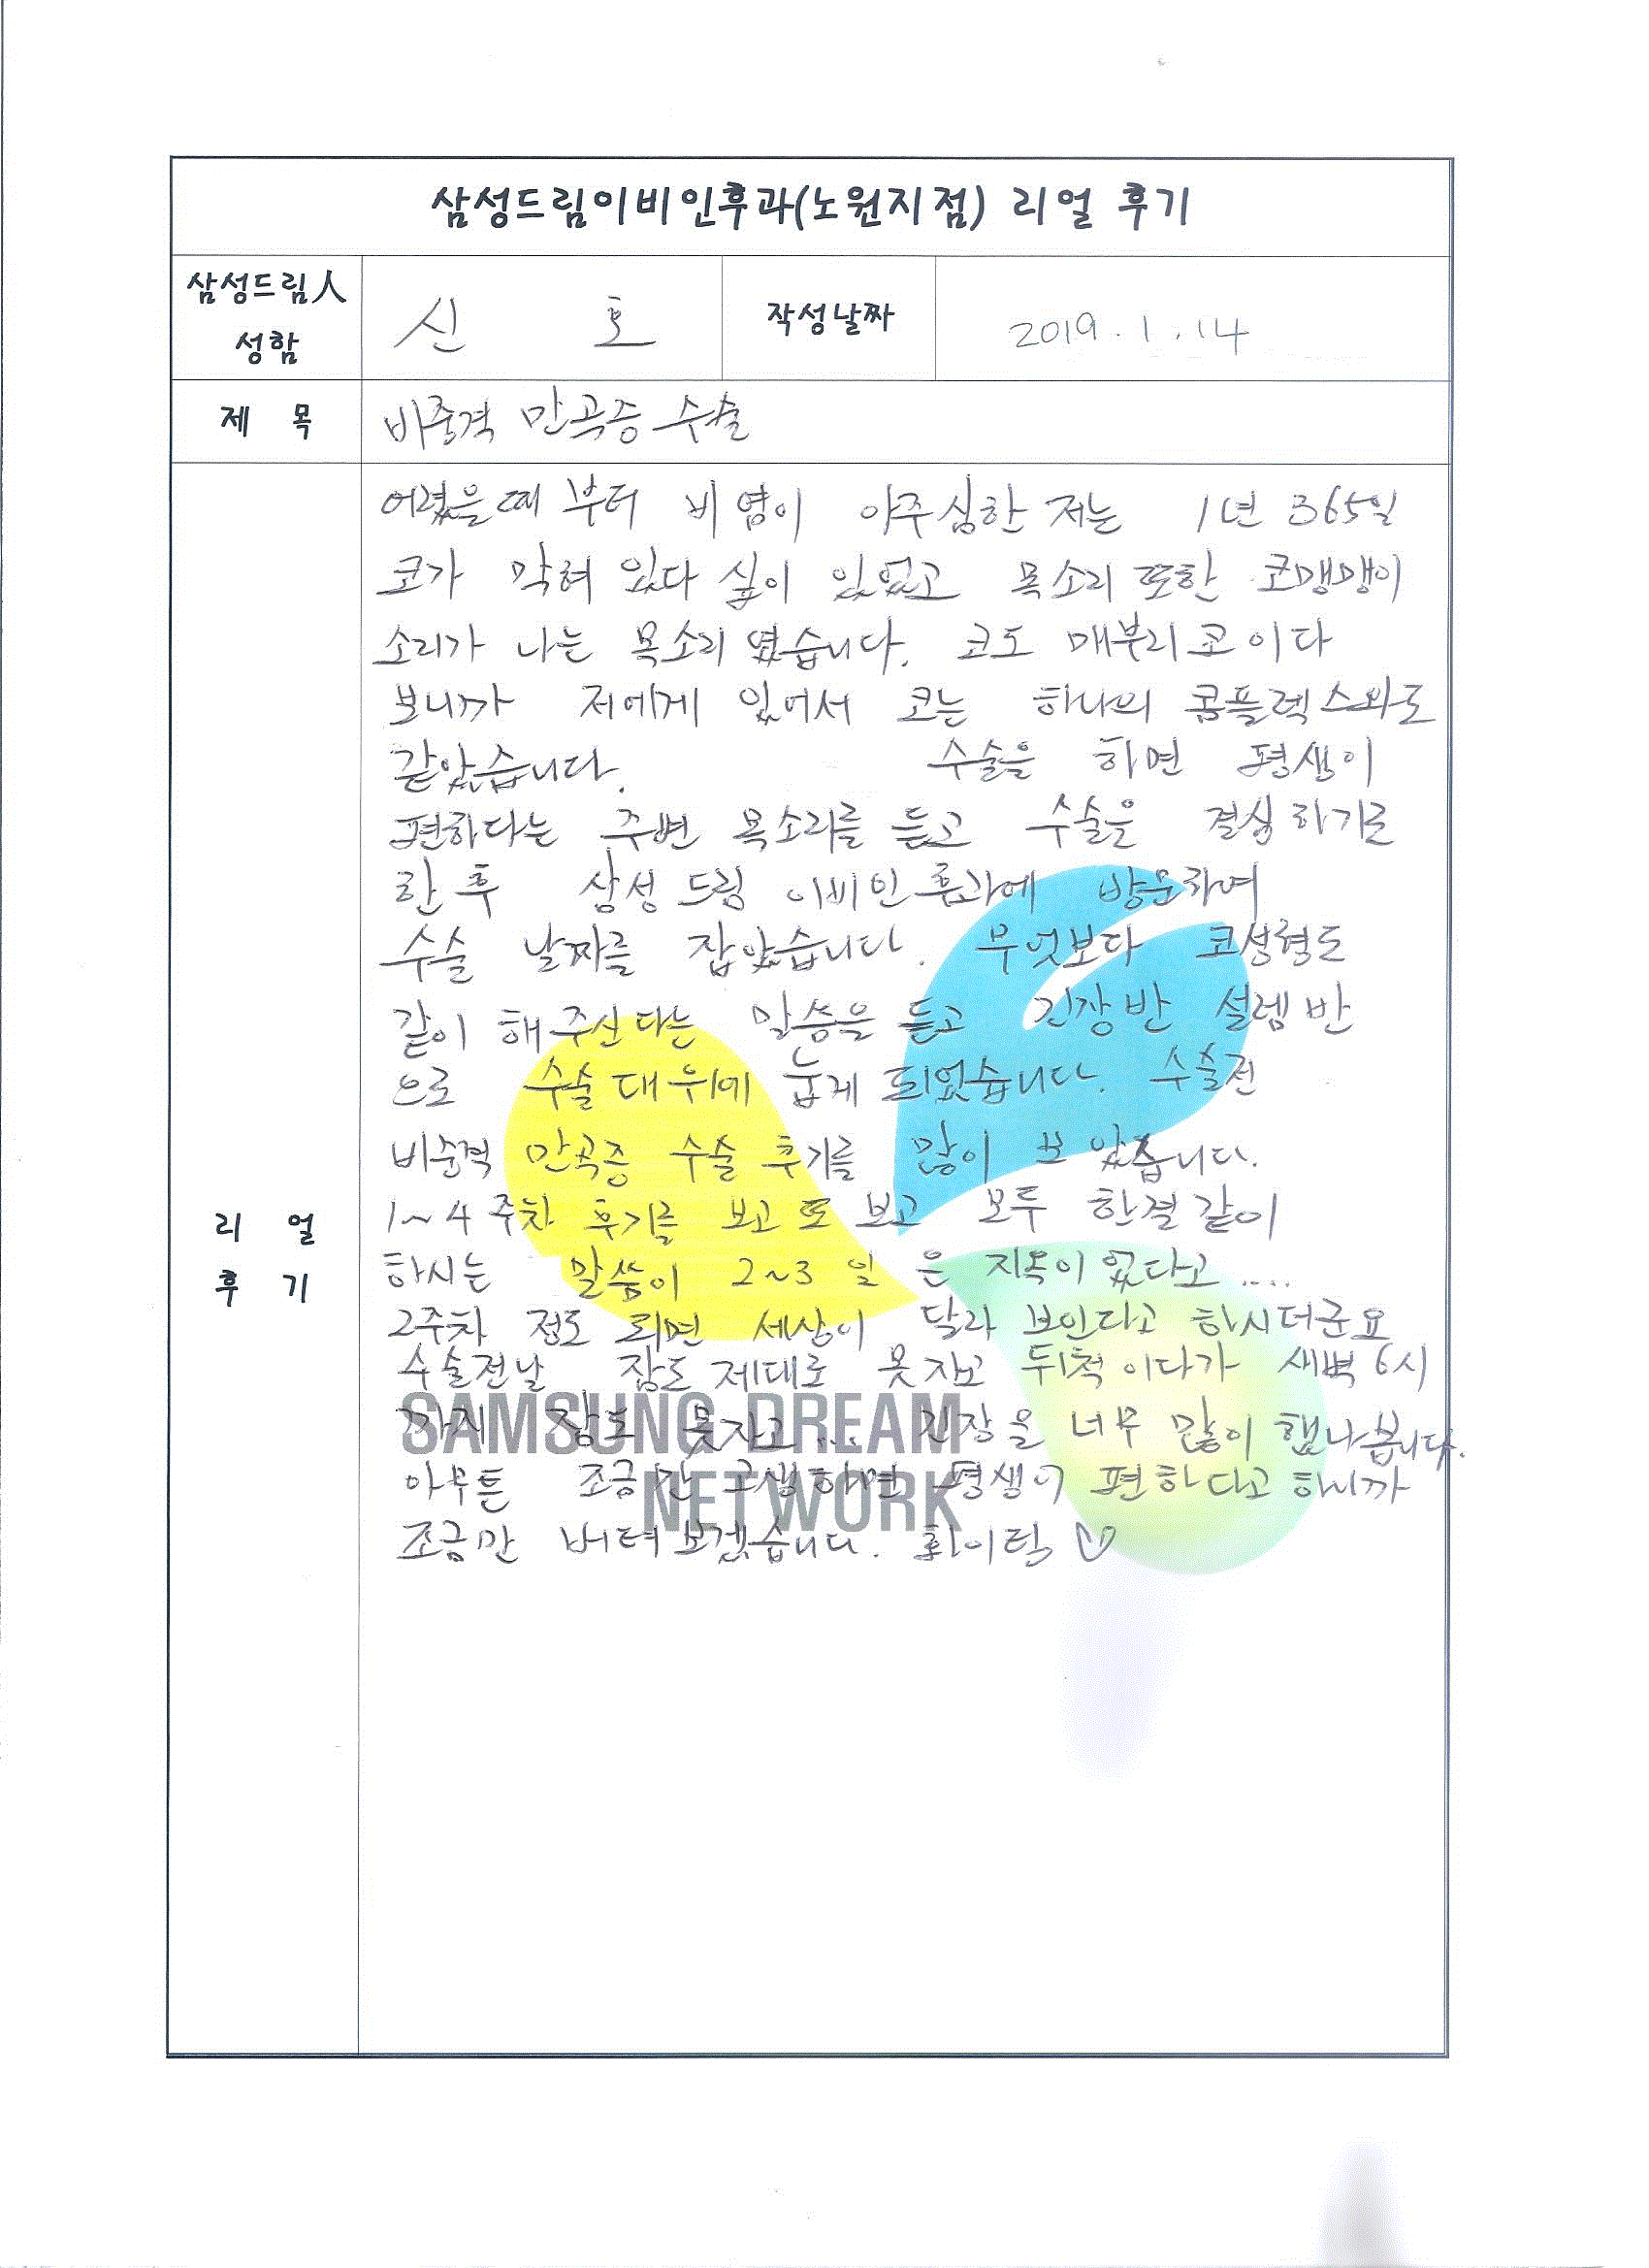 삼성드림이비인후과(노원지점) 리얼 후기
삼성드림人 성함
신 호
작성날짜
2019. 1. 14
제 목
비중격 만곡증 수술
리 얼
후 기
어렸을때 부터 비염이 아주심한 저는 1년 365일
코가 막혀 있다 싶이 있었고 목소리 또한 코맹맹이
소리가 나는 목소리 였습니다. 코도 매부리코이다
보니까 저에게 있어서 코는 하나의 콤플렉스와도
같았습니다. 수술을 하면 평생이
편하다는 주변 목소리를 듣고 수술을 결심하기로
한 후 삼성드림 이비인후과에 방문하여
수술 날짜를 잡았습니다. 무엇보다 코성형도
같이 해주신다는 말씀을 듣고 긴장반 설렘반
으로 수술대위에 눕게 되었습니다. 수술전
비중격 만곡증 수술 후기를 많이 보았습니다.
1~4주차 후기를 보고 또 보고 모두 한결같이
하시는 말씀이 2~3일은 지옥이였다고....
2주차 정도 되면 세상이 달라 보인다고 하시더군요
수술전날 잠도 제대로 못자고 뒤척이다가 새벽 6시
까지 잠도 못자고... 긴장을 너무 많이 했나봅니다.
아무튼 조금만 고생하면 평생이 편하다고 하니까
조금만 버텨보겠습니다. 화이팅 ♡
SAMSUNG DREAM
NETWORK